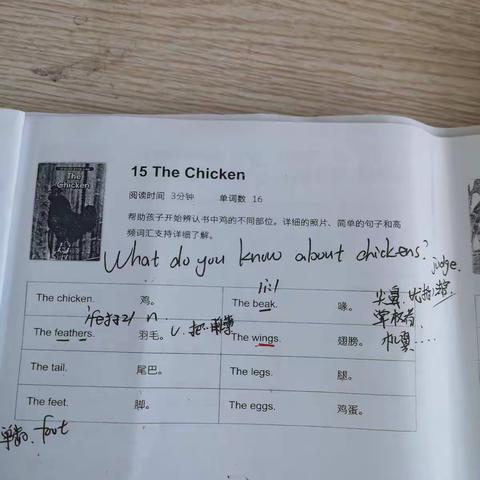 The
Chicken
15 The Chicken
阅读时间 3分钟 单词数 16
帮助孩子开始辨认书中鸡的不同部位。详细的照片、简单的句子和高
频词汇支持详细了解。
What do you know about chickens?
judge.
The chicken. 鸡。 The beak. 喙。
The feathers. 羽毛。 The wings. 翅膀。
n.
v.
掌权者,
机翼...
The tail. 尾巴。 The legs. 腿。
The feet. 脚。 The eggs. 鸡蛋。
foot